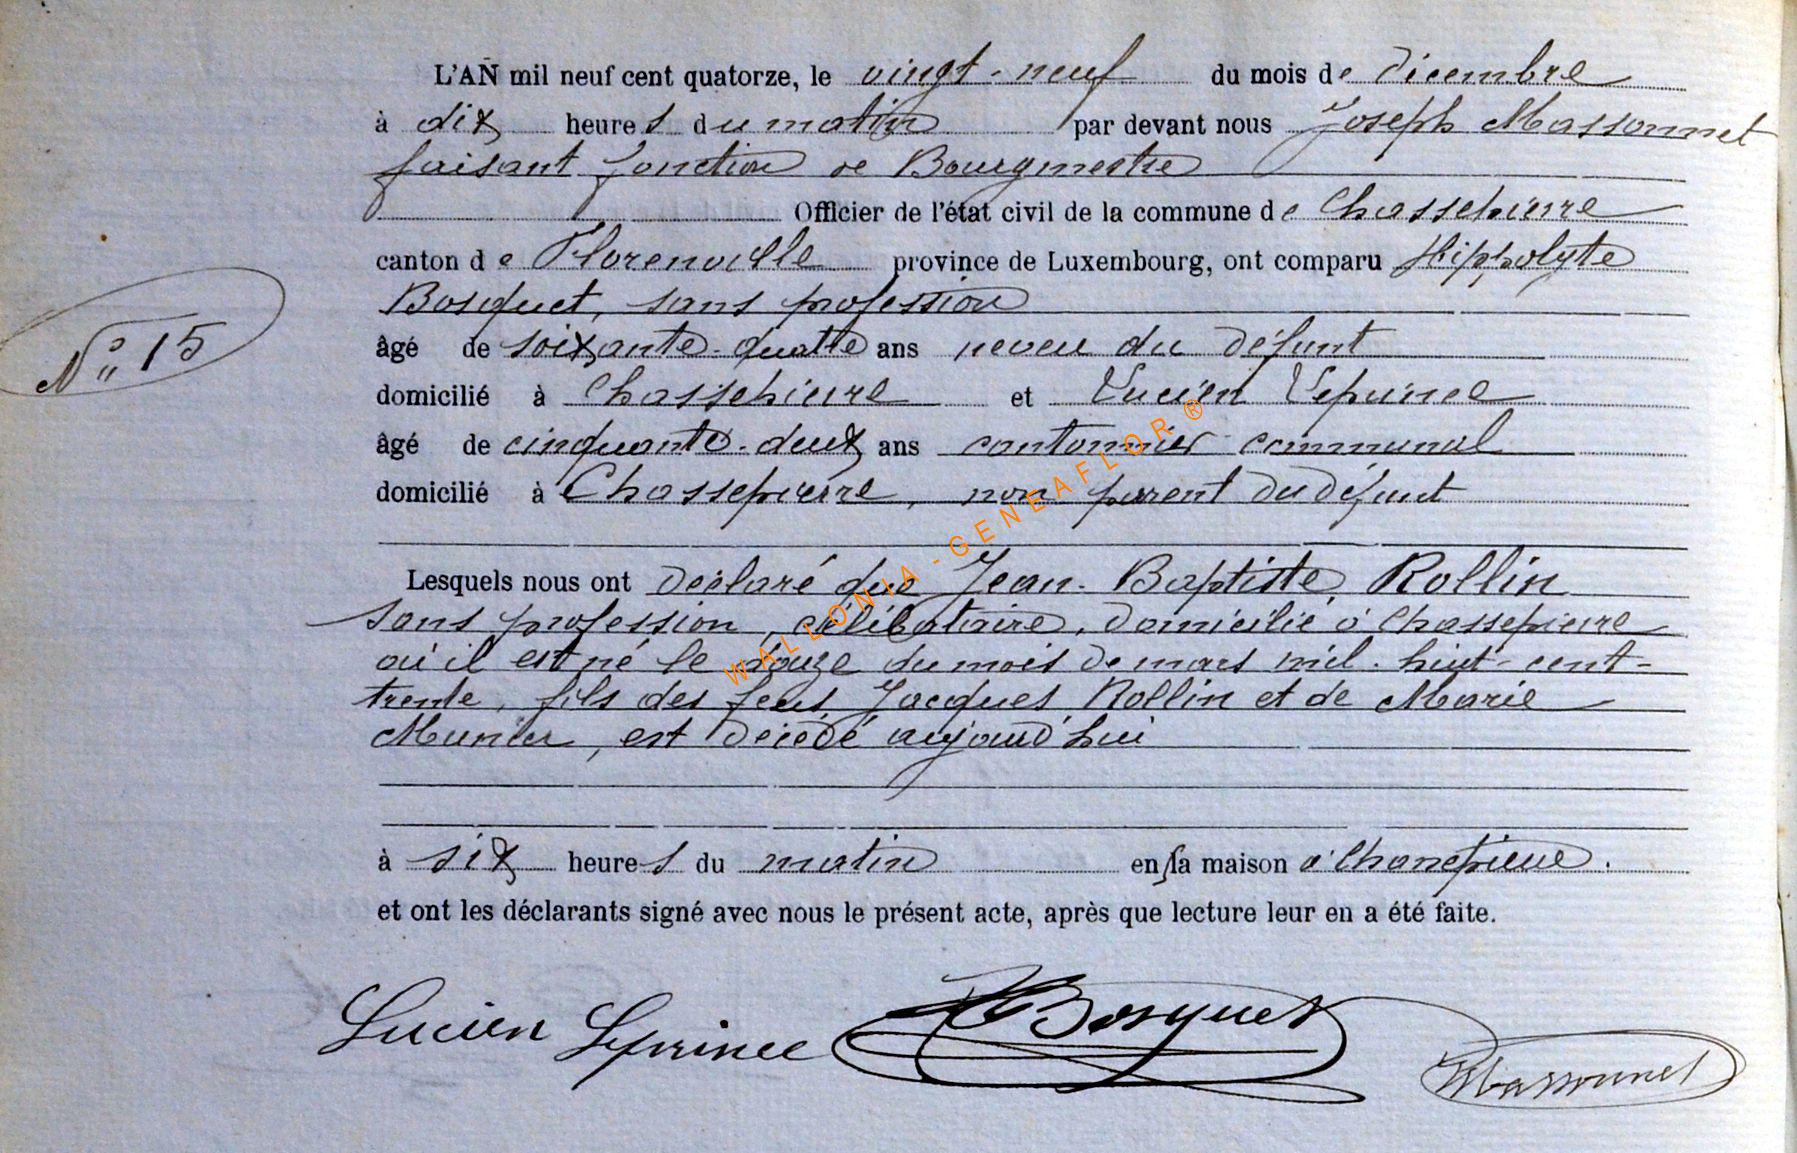 L'AN mil neuf cent quatorze, le vingt-neuf du mois de décembre
à dix heures du matin par devant nous Joseph Massonnet
faisant fonction de Bourgmestre
Officier de l'état civil de la commune de Chassepierre
canton de Florenville province de Luxembourg, ont comparu Hippolyte
Bosquet, sans profession
âgé de soixante-quatre ans neveu du défunt
N° 15
domicilié à Chassepierre et Lucien Leprince
âgé de cinquante-deux ans cantonnier communal
domicilié à Chassepierre, non parent du défunt
Lesquels nous ont déclaré que Jean-Baptiste Rollin
sans profession, célibataire, domicilié à Chassepierre
où il est né le douze du mois de mars mil-huit-cent-
trente, fils des feus Jacques Rollin et de Marie
Munier, est décédé aujourd'hui
à six heures du matin en sa maison à Chassepierre.
et ont les déclarants signé avec nous le présent acte, après que lecture leur en a été faite.
Lucien Leprince H Bosquet Massonnet
WALLONIA-GENEAFLOR ®